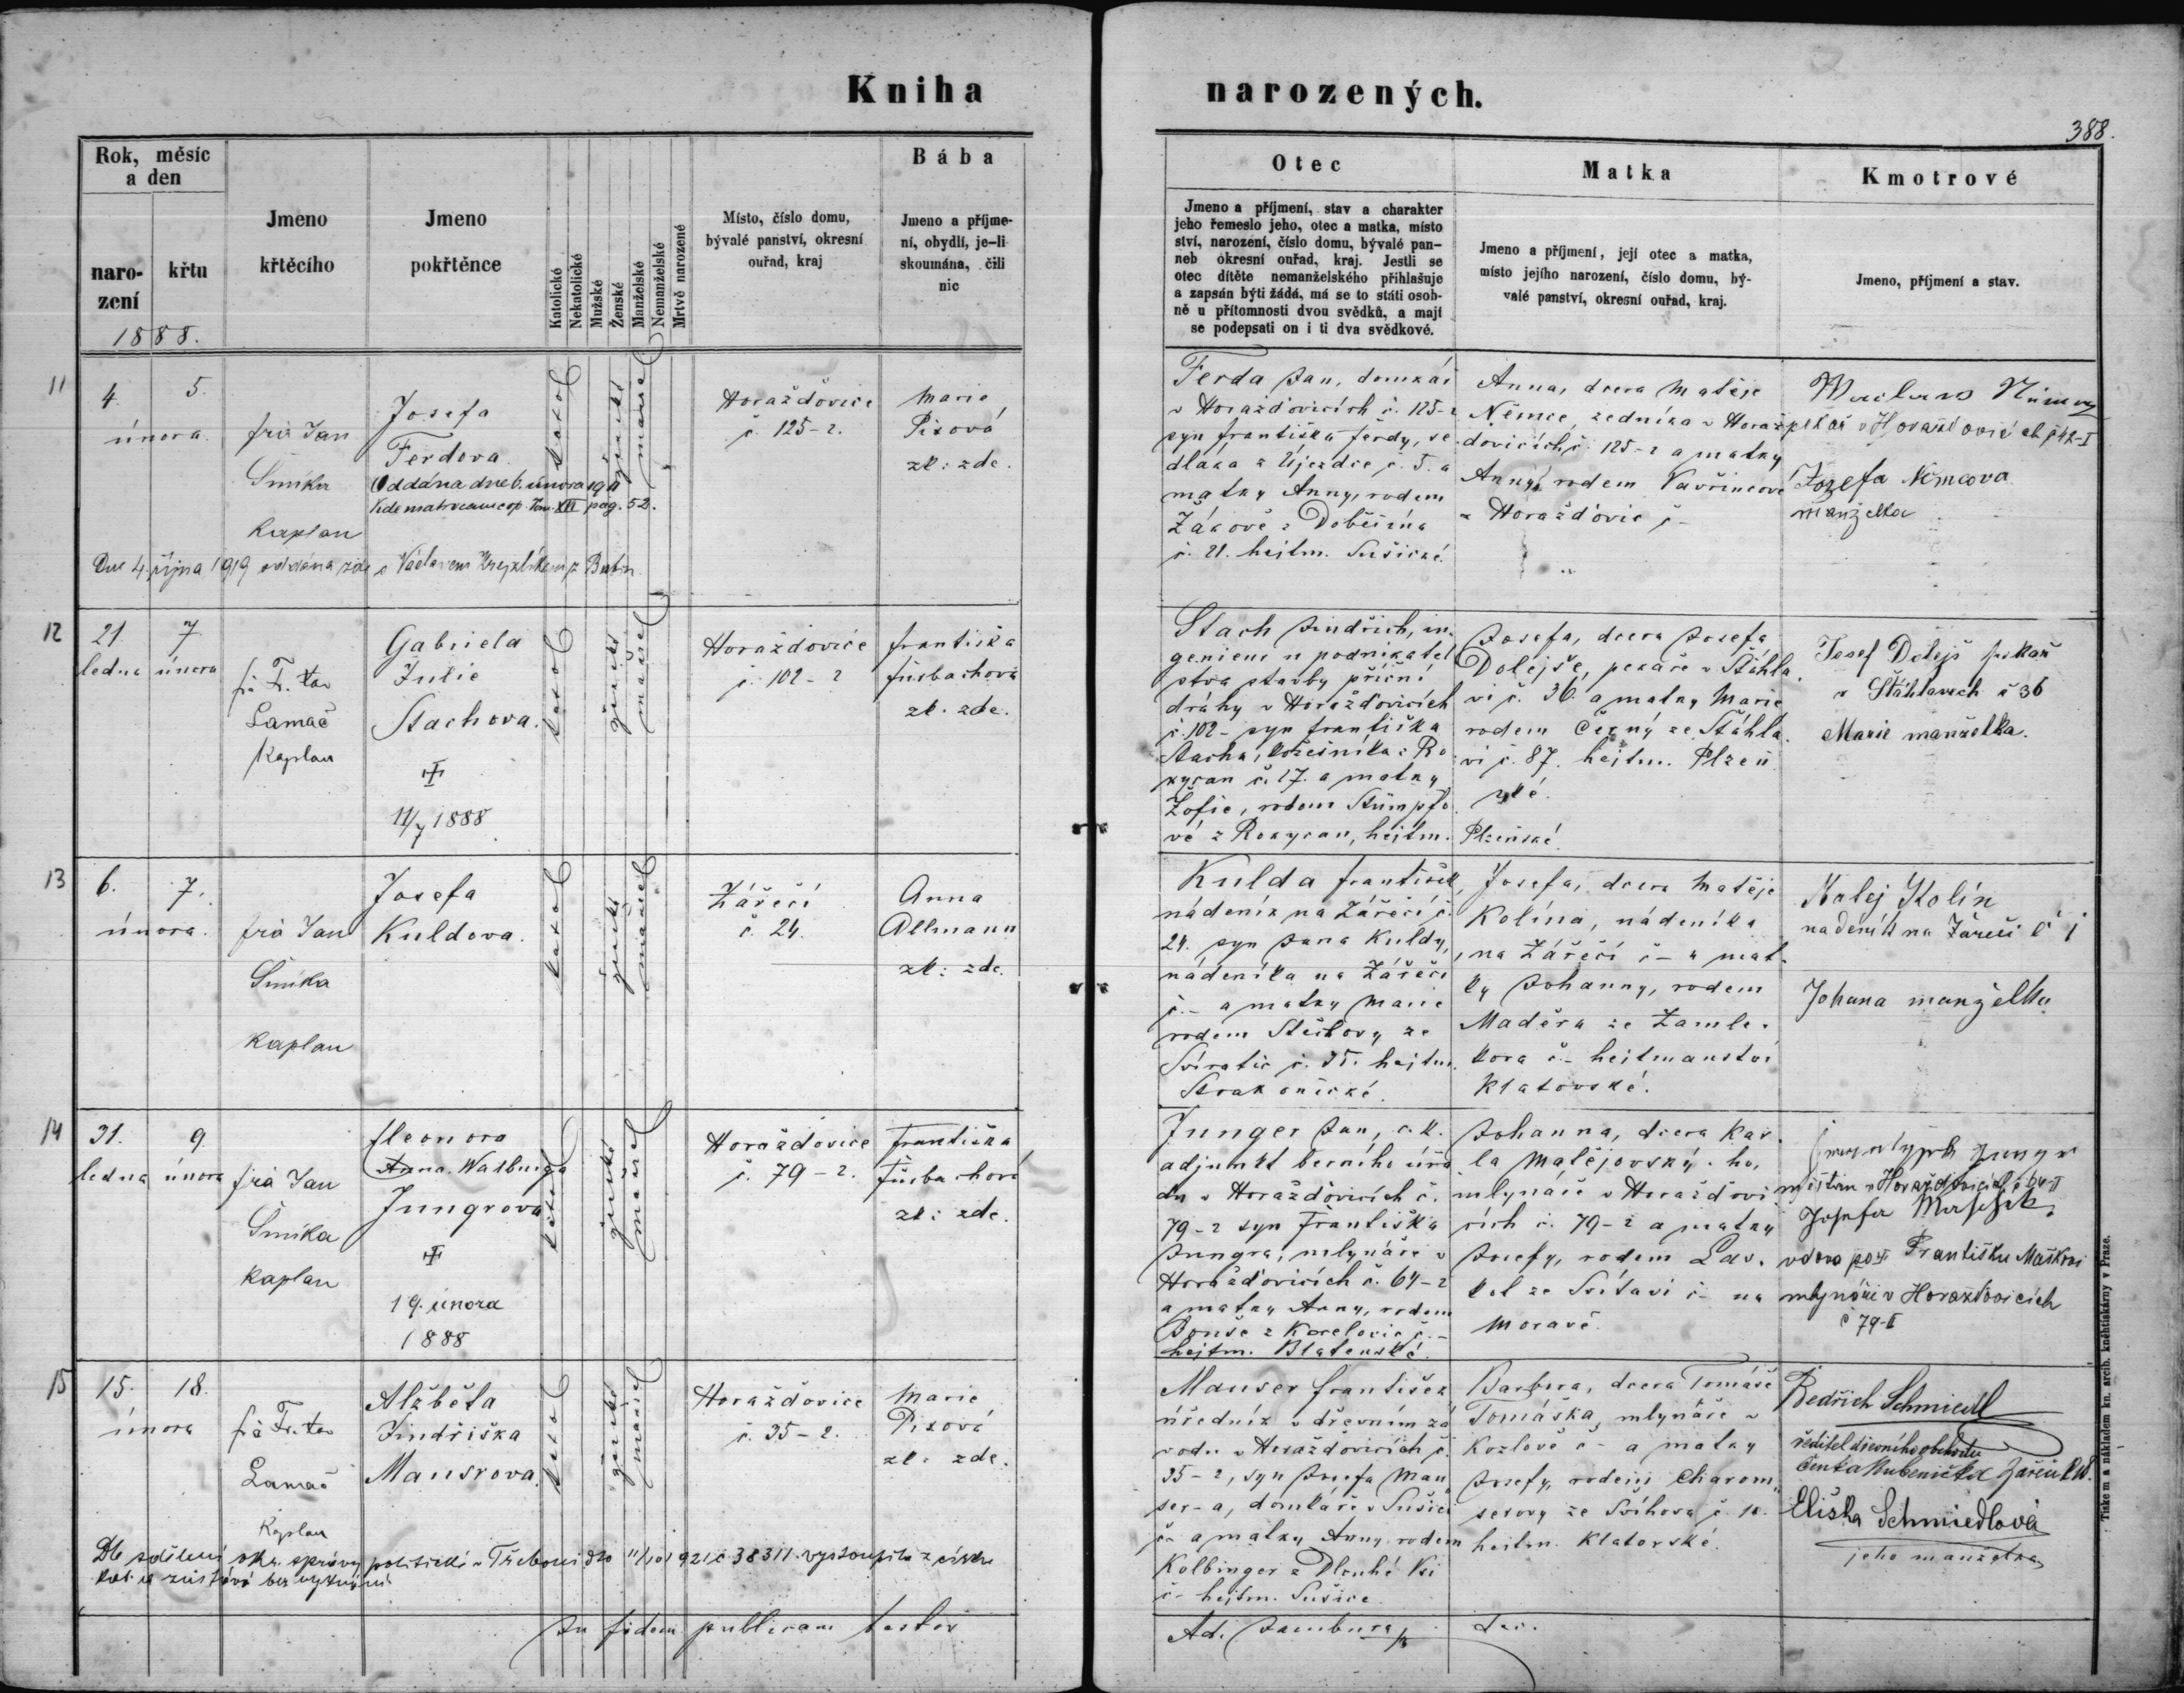 Kniha narozených.
388.
Rok, měsíc
a den
naro-
zení
křtu
1888.
Jmeno
křtěcího
Jmeno
pokřtěnce
Katolické
Nekatolické
Mužské
Ženské
Manželské
Nemanželské
Mrtvě narozené
Místo, číslo domu,
bývalé panství, okresní
ouřad, kraj
Bába
Jmeno a příjme-
ní, obydlí, je-li
zkoumána, čili
nic
Otec
Jmeno a příjmení, stav a charakter
jeho řemeslo jeho, otec a matka, místo
ství, narození, číslo domu, bývalé pan-
neb okresní ouřad, kraj. Jestli se
otec dítěte nemanželského přihlašuje
a zapsán býti žádá, má se to státi osob-
ně u přítomnosti dvou svědků, a mají
se podepsati on i ti dva svědkové.
Matka
Jmeno a příjmení, její otec a matka,
místo jejího narození, číslo domu, bý-
valé panství, okresní ouřad, kraj.
Kmotrové
Jmeno, příjmení a stav.
11
4. 5.
února
Jan
Šmíka
kaplan
Josefa
Ferdova
Oddána dne 6. února 1911
Vide matricam cop. Tom. XIII pag. 52.
Dne 4. října 1919 oddána zde s Václavem
katol
ženské
manžel
Horažďovice
č. 125-2.
Marie
Pixová
zk: zde.
Ferda Jan, domkář
v Horažďovicích č. 125-2
syn Františka Ferdy, se-
dláka z Újezdce č. 5. a
matky Anny, rodem
Žákové z
č. 21. hejtm. Sušické.
Anna, dcera Matěje
Němce, zedníka v Horaž-
ďovicích č. 125-2 a matky
Anny, rodem Vavřincové
z Horažďovic č-
pekař v
Jozefa Němcova
manželka
12
21. 7.
ledna února
Fr.
Lamač
Kaplan
Gabriela
Julie
Stachova.
11/7 1888
katol
ženské
manžel
Horažďovice
č. 102-2
Františka
Fürbachová
zk. zde.
Stach Jindřich, in-
genieur u podnikatel-
stva stavby příční
dráhy v Horažďovicích
č. 102- syn Františka
Stacha, kožešníka z Ro-
kycan č. 17. a matky
Žofie, rodem Stümpfo-
vé z Rokycan, hejtm. Plzeňské.
Josefa, dcera Josefa
Dolejše, pekaře v Štáhla-
vi č. 36. a matky Marie
rodem Černý ze Štáhla-
vi č. 87. hejtm. Plzeň-
ské.
Josef Dolejš pekař
v Štáhlavech č 36
Marie manželka.
13
6. 7.
února.
Jan
Šmíka
kaplan
Josefa
Kuldova.
katol
ženské
manžel
Zářečí
č. 24.
Anna
Allmann
zk: zde.
Kulda František,
nádeník na Zářečí č.
24. syn Jana Kuldy,
nádeníka na Zářečí
č.- a matky Marie
rodem ze
č. 35. hejtm.
Strakonické.
Josefa, dcera Matěje
Kolína, nádeníka
na Zářečí č- a mat-
ky Johanny, rodem
Maděra ze Zamle-
kova č- hejtmanství
Klatovské.
Matej Kolín
nadeník na Zářečí č
Johana manželka
14
31. 9.
ledna února
Jan
Šmíka
kaplan
Eleonora
Anna Walburga
Jungrova
19. února
1888
katol
ženské
manžel
Horažďovice
č. 79-2.
Františka
Fürbachová
zk: zde.
Junger Jan, c. k.
adjunkt berního úřa-
du v Horažďovicích č.
79-2 syn Františka
Jungra, mlynáře v
Horažďovicích č. 64-2
a matky Anny, rodem
z č.-
hejtm. Blatenské.
Johanna, dcera Kar-
la Matějovský-ho,
mlynáře v Horažďovi-
cích č. 79-2 a matky
Josefy, rodem
ze Svítavi č- na
Moravě.
Junger
měštan v Horažďovicích č 64-II
Josefa
vdova po Františku Maškovi
mlynáři v Horažďovicích
č 79-II
15
15. 18.
února
Fr.
Lamač
Kaplan
Alžběta
Jindřiška
Mausrova.
katol
ženské
manžel
Horažďovice
č. 35-2.
Marie
Pixová
zk: zde.
Dle sdělení okr. správy politické v Třeboni dto 1921 č 38311 vystoupila z církve
kat. a zůstává bez vyznání
Mauser František
úředník v dřevním zá-
vodu v Horažďovicích č.
35-2, syn Josefa Mau-
ser-a, domkáře v Sušici
č- a matky Anny, rodem
Kolbinger z Dlouhé Vsi
č- hejtm. Sušice
Barbora, dcera Tomáše
Tomáška, mlynáře v
Kozlově č- a matky
Josefy, rodem
ze Švihova č. 10.
hejtm. Klatovské.
Bedřich Schmiedl
ředitel dřevního obchodu
Eliška Schmiedlová
jeho manželka
In fidem publicam testor
Ad. Jambura
Tiskem a nákladem kn. arcib. knihtiskárny v Praze.